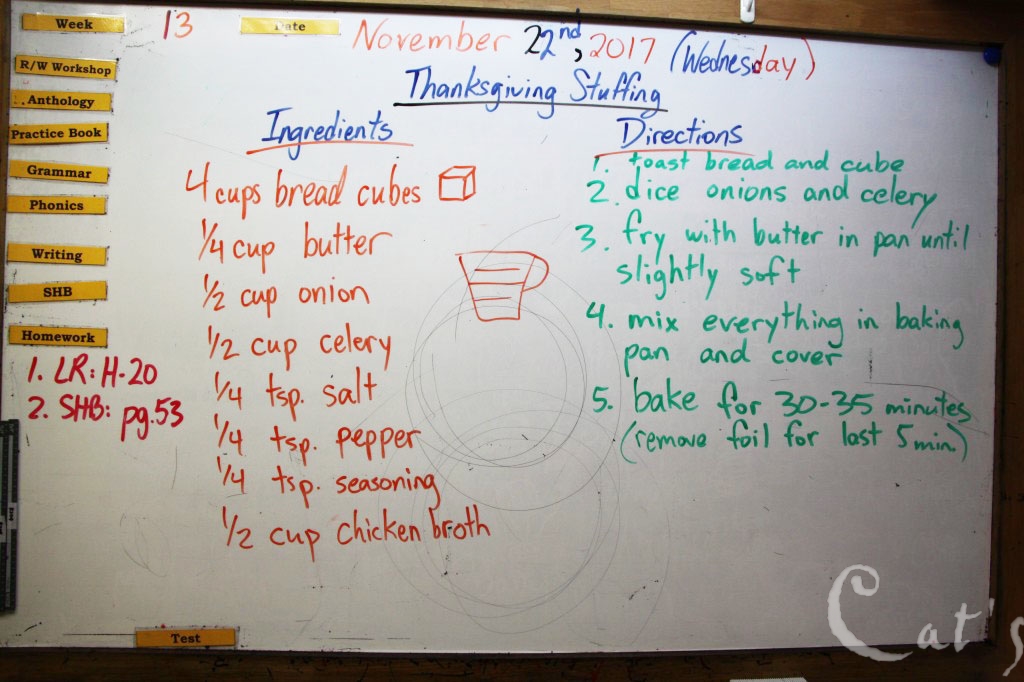 Week
13
Date
November 22nd, 2017 (Wednesday)
R/W Workshop
Anthology
Practice Book
Grammar
Phonics
Writing
SHB
Homework
1. LR: H-20
2. SHB: pg.53
Thanksgiving Stuffing
Ingredients
4 cups bread cubes
1/4 cup butter
1/2 cup onion
1/2 cup celery
1/4 tsp. salt
1/4 tsp. pepper
1/4 tsp. seasoning
1/2 cup chicken broth
Directions
1. toast bread and cube
2. dice onions and celery
3. fry with butter in pan until
slightly soft
4. mix everything in baking
pan and cover
5. bake for 30-35 minutes
(remove foil for last 5 min)
Test
Cat's